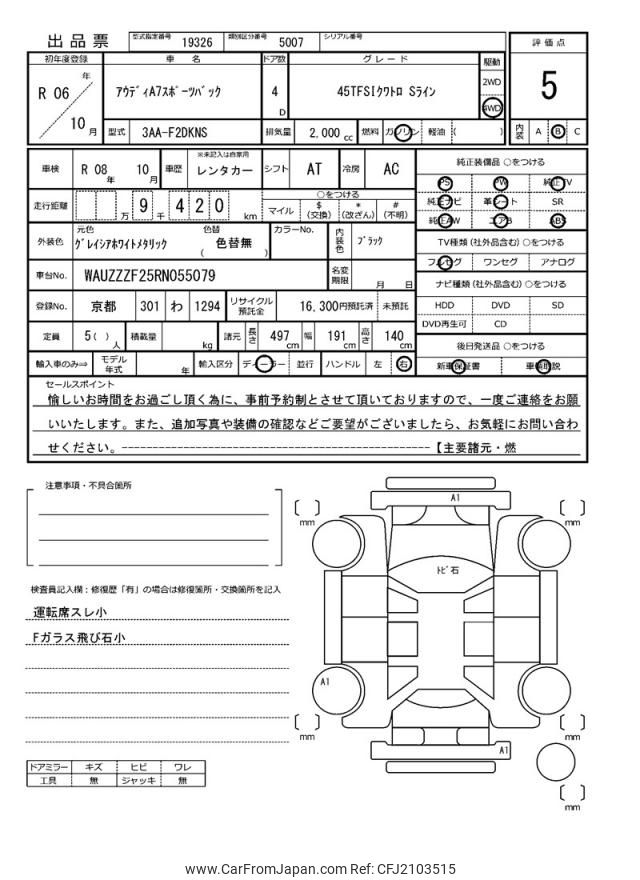 出品票
型式指定番号 19326 類別区分番号 5007 シリアル番号
初年度登録 車名 ドア数 グレード 駆動 評価点
R 06 年 10 月 アウディA7スポーツバック 4 D 45TFSIクワトロ Sライン 2WD 4WD 5
型式 3AA-F2DKNS 排気量 2,000 cc 燃料 ガソリン 軽油 ( ) 内装 A B C
車検 R 08 年 10 月 車歴 ※未記入は自家用 レンタカー シフト AT 冷房 AC
純正装備品 ○をつける
PS PW 純正TV
純正ナビ 革シート SR
純正AW エアB ABS
走行距離 万 9 千 4 2 0 km
○をつける
マイル $ (交換) * (改ざん) # (不明)
外装色 元色 グレイシアホワイトメタリック 色替 ( 色替無 ) カラーNo. 内装色 ブラック
TV種類 (社外品含む) ○をつける
フルセグ ワンセグ アナログ
車台No. WAUZZZF25RN055079 名変期限 月 日
ナビ種類 (社外品含む) ○をつける
HDD DVD SD
DVD再生可 CD
登録No. 京都 301 わ 1294 リサイクル預託金 16,300円預託済 未預託
定員 5( ) 人 積載量 kg 諸元 長さ 497 cm 幅 191 cm 高さ 140 cm
後日発送品 ○をつける
新車保証書 車輌取説
輸入車のみ⇒ モデル年式 年 輸入区分 ディーラー 並行 ハンドル 左 右
セールスポイント
愉しいお時間をお過ごし頂く為に、事前予約制とさせて頂いておりますので、一度ご連絡をお願
いいたします。また、追加写真や装備の確認などご要望がございましたら、お気軽にお問い合わ
せください。----------------------------------------【主要諸元・燃
注意事項・不具合箇所
検査員記入欄：修復歴「有」の場合は修復箇所・交換箇所を記入
運転席スレ小
Fガラス飛び石小
ドアミラー キズ ヒビ ワレ
工具 無 ジャッキ 無
A1
[ ] mm
[ ] mm
トビ石
A1
[ ] mm
[ ] mm
A1
[ ] mm
www.CarFromJapan.com Ref: CFJ2103515